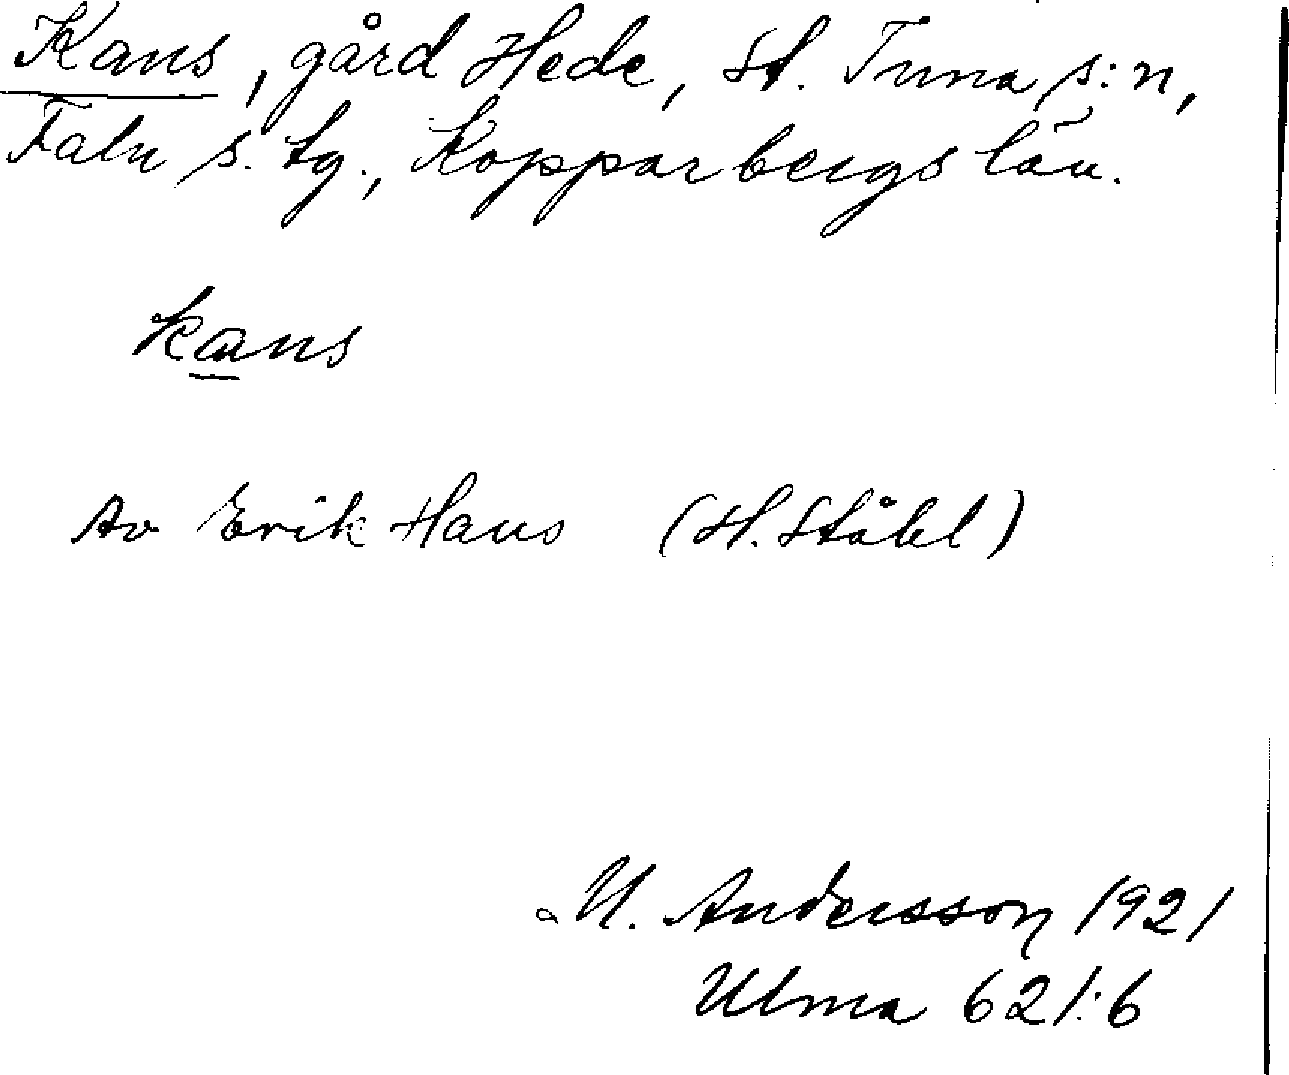 Kans, gård Hede, St. Tuna s:n,
Falu s. tg., Kopparbergs län.
kans
Av Erik Hans (H. Ståhl)
M. Andersson 1921
Ulma 621:6